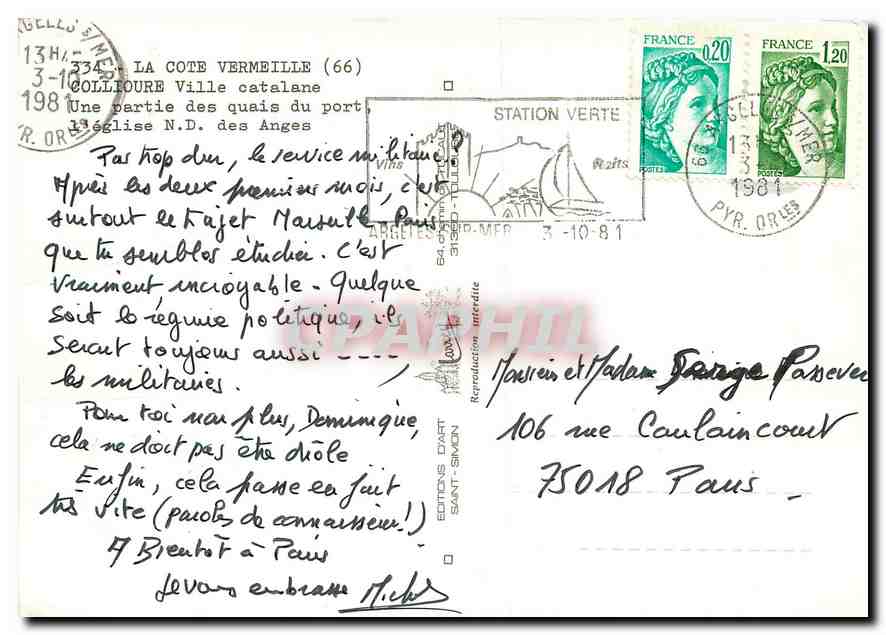 ARGELES S/MER
13H45
3-10
1981
PYR. ORLES
334 - LA COTE VERMEILLE (66)
COLLIOURE Ville catalane
Une partie des quais du port
l'église N.D. des Anges
Pas trop dur, le service militaire?
Après les deux premiers mois, c'est
surtout le trajet Marseille-Paris
que tu sembles étudier. C'est
vraiment incroyable. Quelque
soit le régime politique, ils
seront toujours aussi ----
les militaires.
Pour toi non plus, Dominique,
cela ne doit pas être drôle
Enfin, cela passe en fait
très vite (paroles de connaisseur!)
A Bientôt à Paris
Je vous embrasse Michel
FRANCE
0,20
POSTES
FRANCE
1,20
POSTES
STATION VERTE
Vins
ARGELES-SUR-MER 3-10-81
ARGELES S/MER
66
13
3
1981
PYR. ORLES
31300 - TOULOUSE
Reproduction interdite
EDITIONS D'ART
SAINT-SIMON
CPAPHIL
Monsieur et Madame Serge Passever
106 rue Caulaincourt
75018 Paris